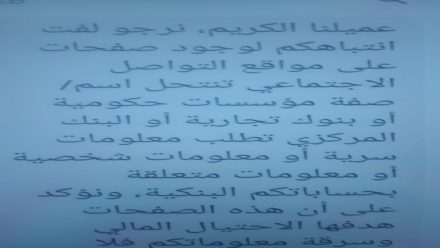 عميلنا الكريم، نرجو لفت
انتباهكم لوجود صفحات
على مواقع التواصل
الاجتماعي تنتحل اسم/
صفة مؤسسات حكومية
أو بنوك تجارية أو البنك
المركزي تطلب معلومات
سرية أو معلومات شخصية
أو معلومات متعلقة
بحساباتكم البنكية، ونؤكد
على أن هذه الصفحات
هدفها الاحتيال المالي
وسرقة معلوماتكم فلا